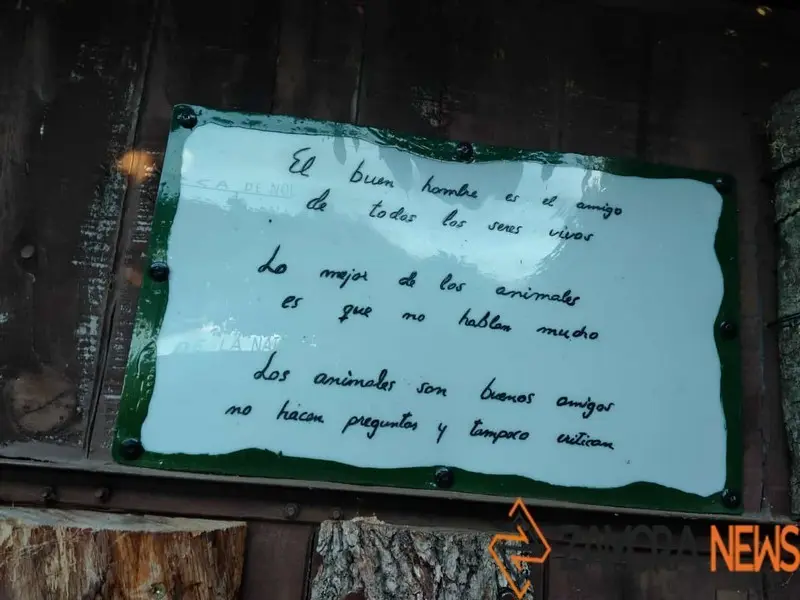 El buen hombre es el amigo
de todos los seres vivos
Lo mejor de los animales
es que no hablan mucho
Los animales son buenos amigos
no hacen preguntas y tampoco critican
ZAMORA NEWS